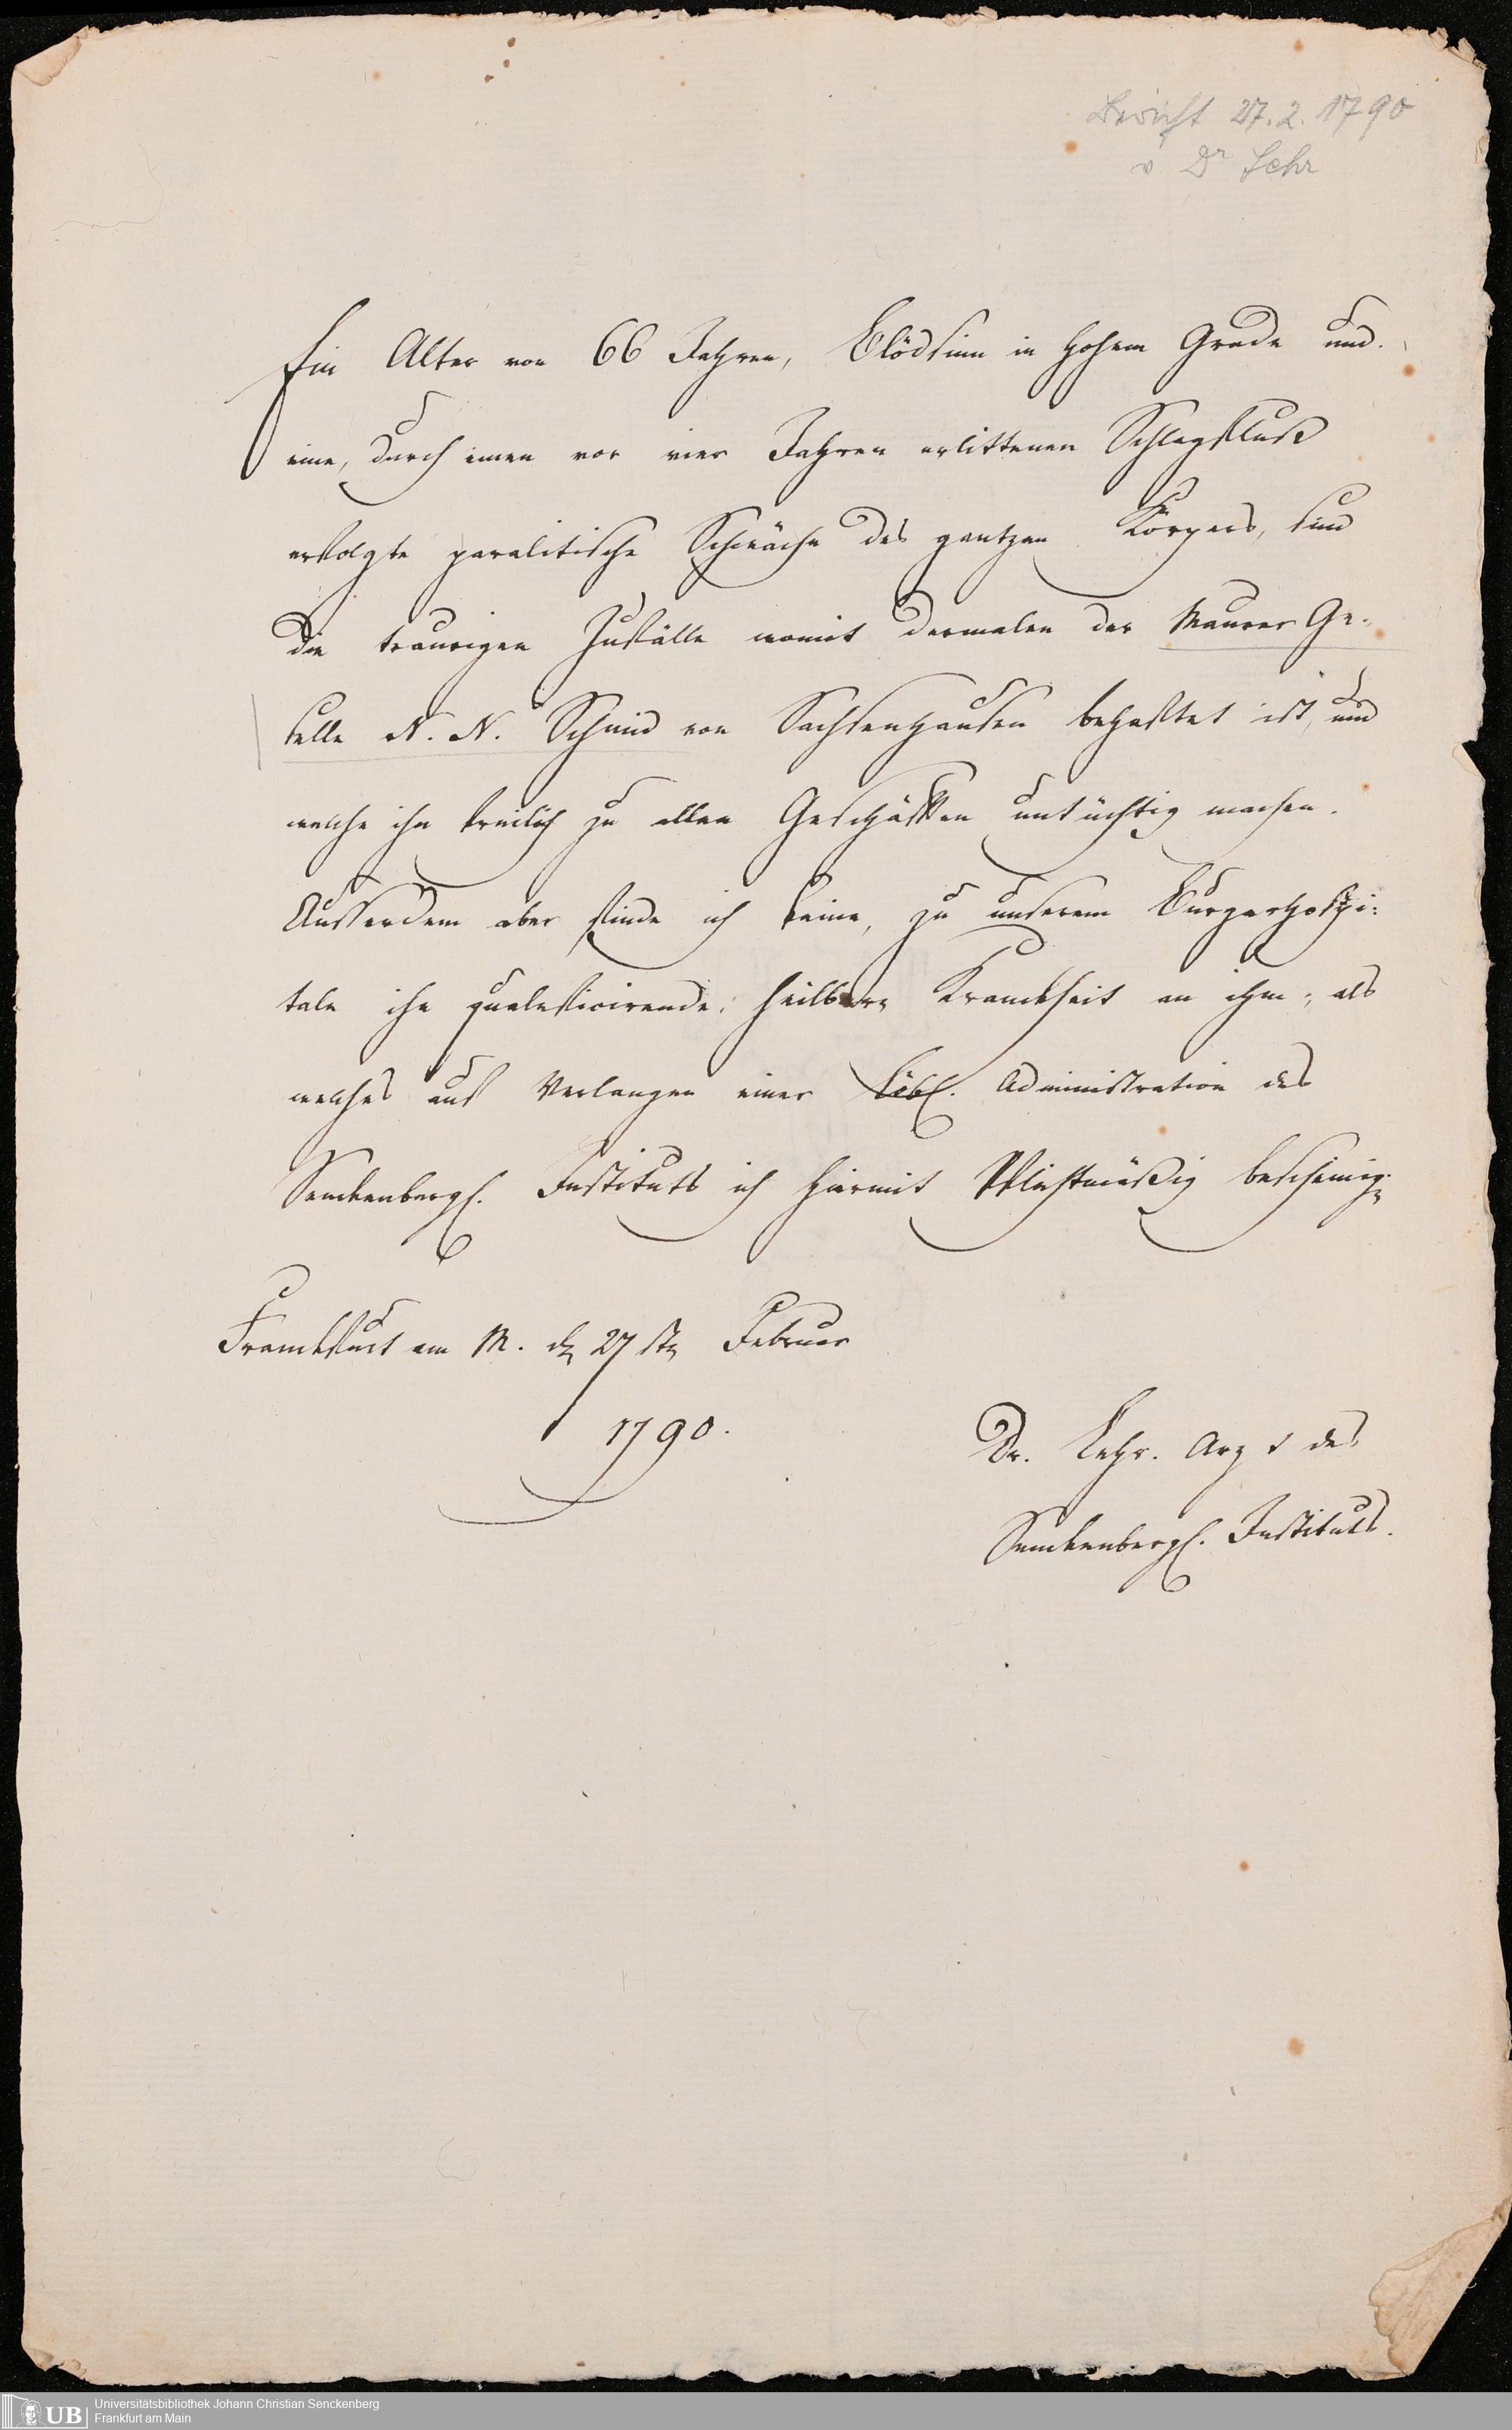 Bericht 27.2.1790
v Dr Lehr
Ein Alter von 66 Jahren, Blödsinn in hohem Grade und
eine, durch einen vor vier Jahren erlittenen Schlagfluß
erfolgte paralitische Schwäche des gantzen Körpers, sind
die traurigen Zufälle womit dermalen der Maurer Ge-
selle N. N. Schmid von Sachsenhausen behaftet ist, und
welche ihn freilich zu allen Geschäften untüchtig machen.
Ausserdem aber finde ich keine, zu unserem Burgerhospi:
tale ihn qualificirende, heilbare Kranckheit an ihm; als
welches auf Verlangen einer Löbl. Administration des
Senckenbergl. Instituts ich hiermit Pflichtmäßig bescheinige.
Franckfurt am M. den 27sten Februar
1790.
Dr. Lehr. Arzt des
Senckenbergl. Instituts.
UB
Universitätsbibliothek Johann Christian Senckenberg
Frankfurt am Main